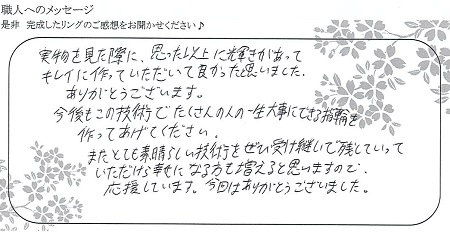 職人へのメッセージ
是非 完成したリングのご感想をお聞かせください♪
実物を見た際に、思った以上に輝きがあって
キレイに作っていただいて良かった思いました.
ありがとうございます。
今後もこの技術でたくさんの人の一生大事にできる指輪を
作ってあげてください。
またとても素晴らしい技術をぜひ受け継いで残していって
いただけら幸せになる方も増えると思いますので、
応援しています。今回はありがとうございました。